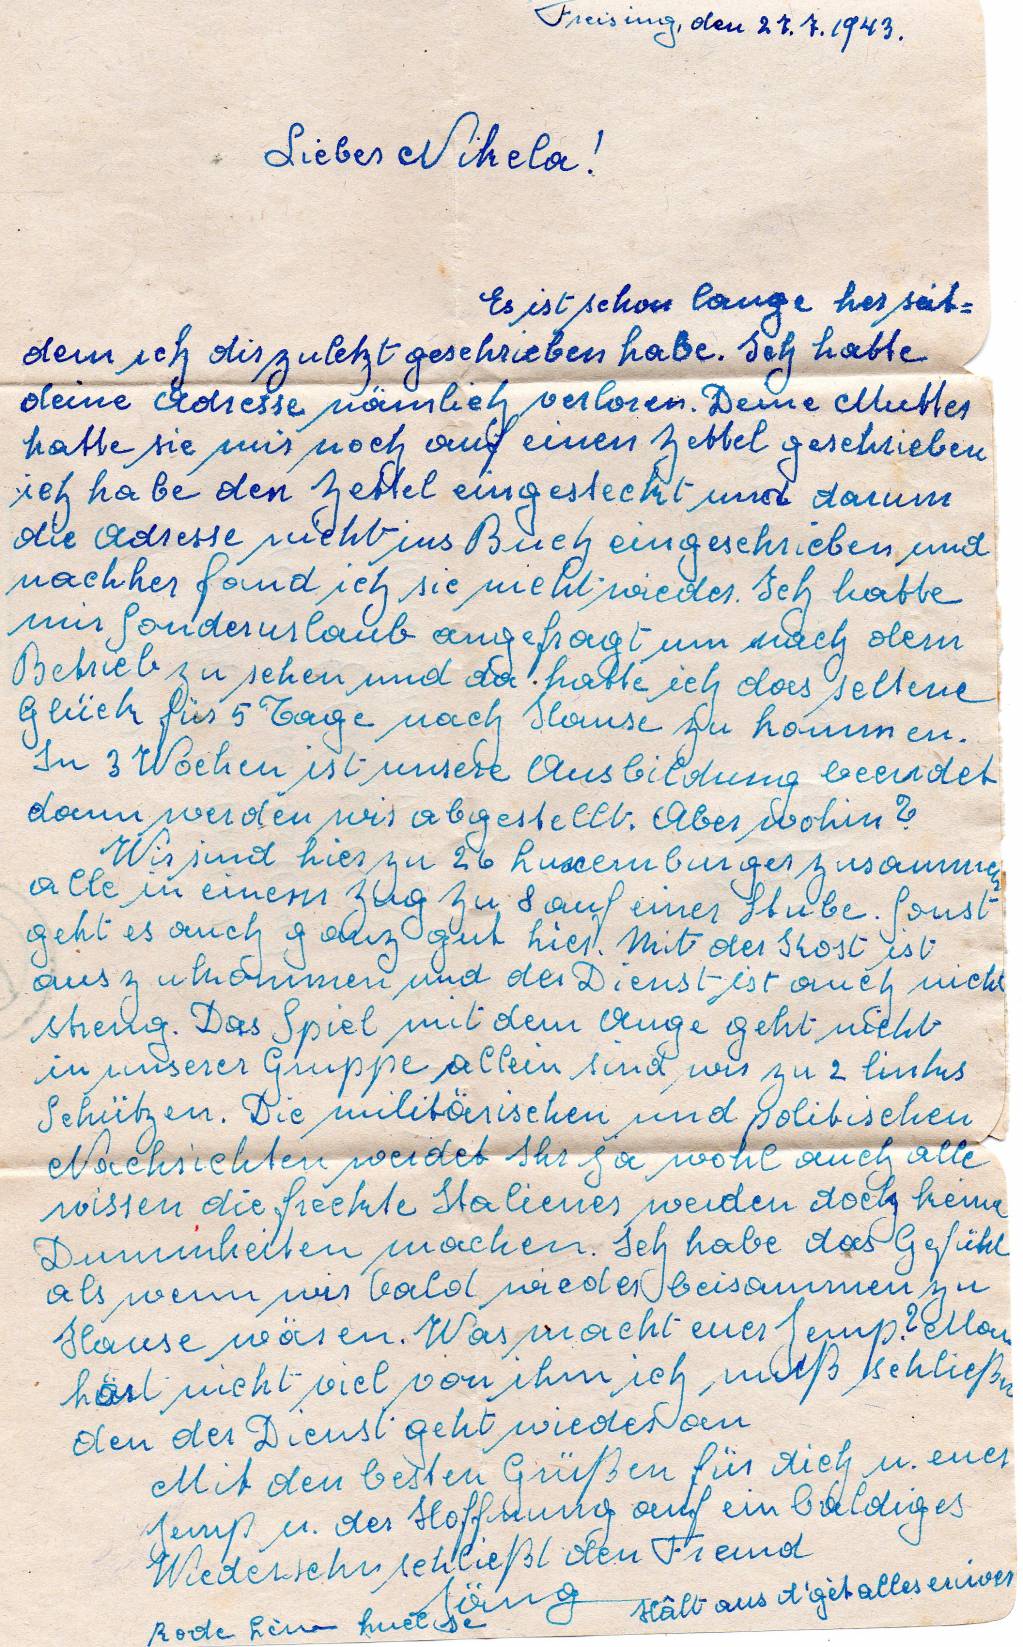 Freising, den 27.7.1943.
Lieber Nikela!
Es ist schon lange her seit=
dem ich dir zuletzt geschrieben habe. Ich hatte
deine Adresse nämlich verloren. Deine Mutter
hatte sie mir noch auf einen Zettel geschrieben
ich habe den Zettel eingesteckt und darum
die Adresse nicht ins Buch eingeschrieben und
nachher fand ich sie nicht wieder. Ich hatte
mir Sonderurlaub angefragt um nach dem
Betrieb zu sehen und da hatte ich das seltene
Glück für 5 Tage nach Hause zu kommen.
In 3 Wochen ist unsere Ausbildung beendet
dann werden wir abgestellt. Aber wohin?
Wir sind hier zu 26 Luxemburger zusammen
alle in einem Zug zu 8 auf einer Stube. Sonst
geht es auch ganz gut hier. Mit der Kost ist
auszukommen und der Dienst ist auch nicht
streng. Das Spiel mit dem Auge geht nicht
in unserer Gruppe allein sind wir zu 2 links
Schützen. Die militärischen und politischen
Nachrichten werdet Ihr ja wohl auch alle
wissen die freckte Italiener werden doch keine
Dummheiten machen. Ich habe das Gefühl
als wenn wir bald wieder beisammen zu
Hause wären. Was macht euer Jemp.? Man
hört nicht viel von ihm ich muß schließen
den der Dienst geht wieder an
Mit den besten Grüßen für dich u. euer
Jemp u. der Hoffnung auf ein baldiges
Wiedersehn schließt den Freund
Jäng
Hâlt aus d'gét alles eriwer
Rode Léiw huel se